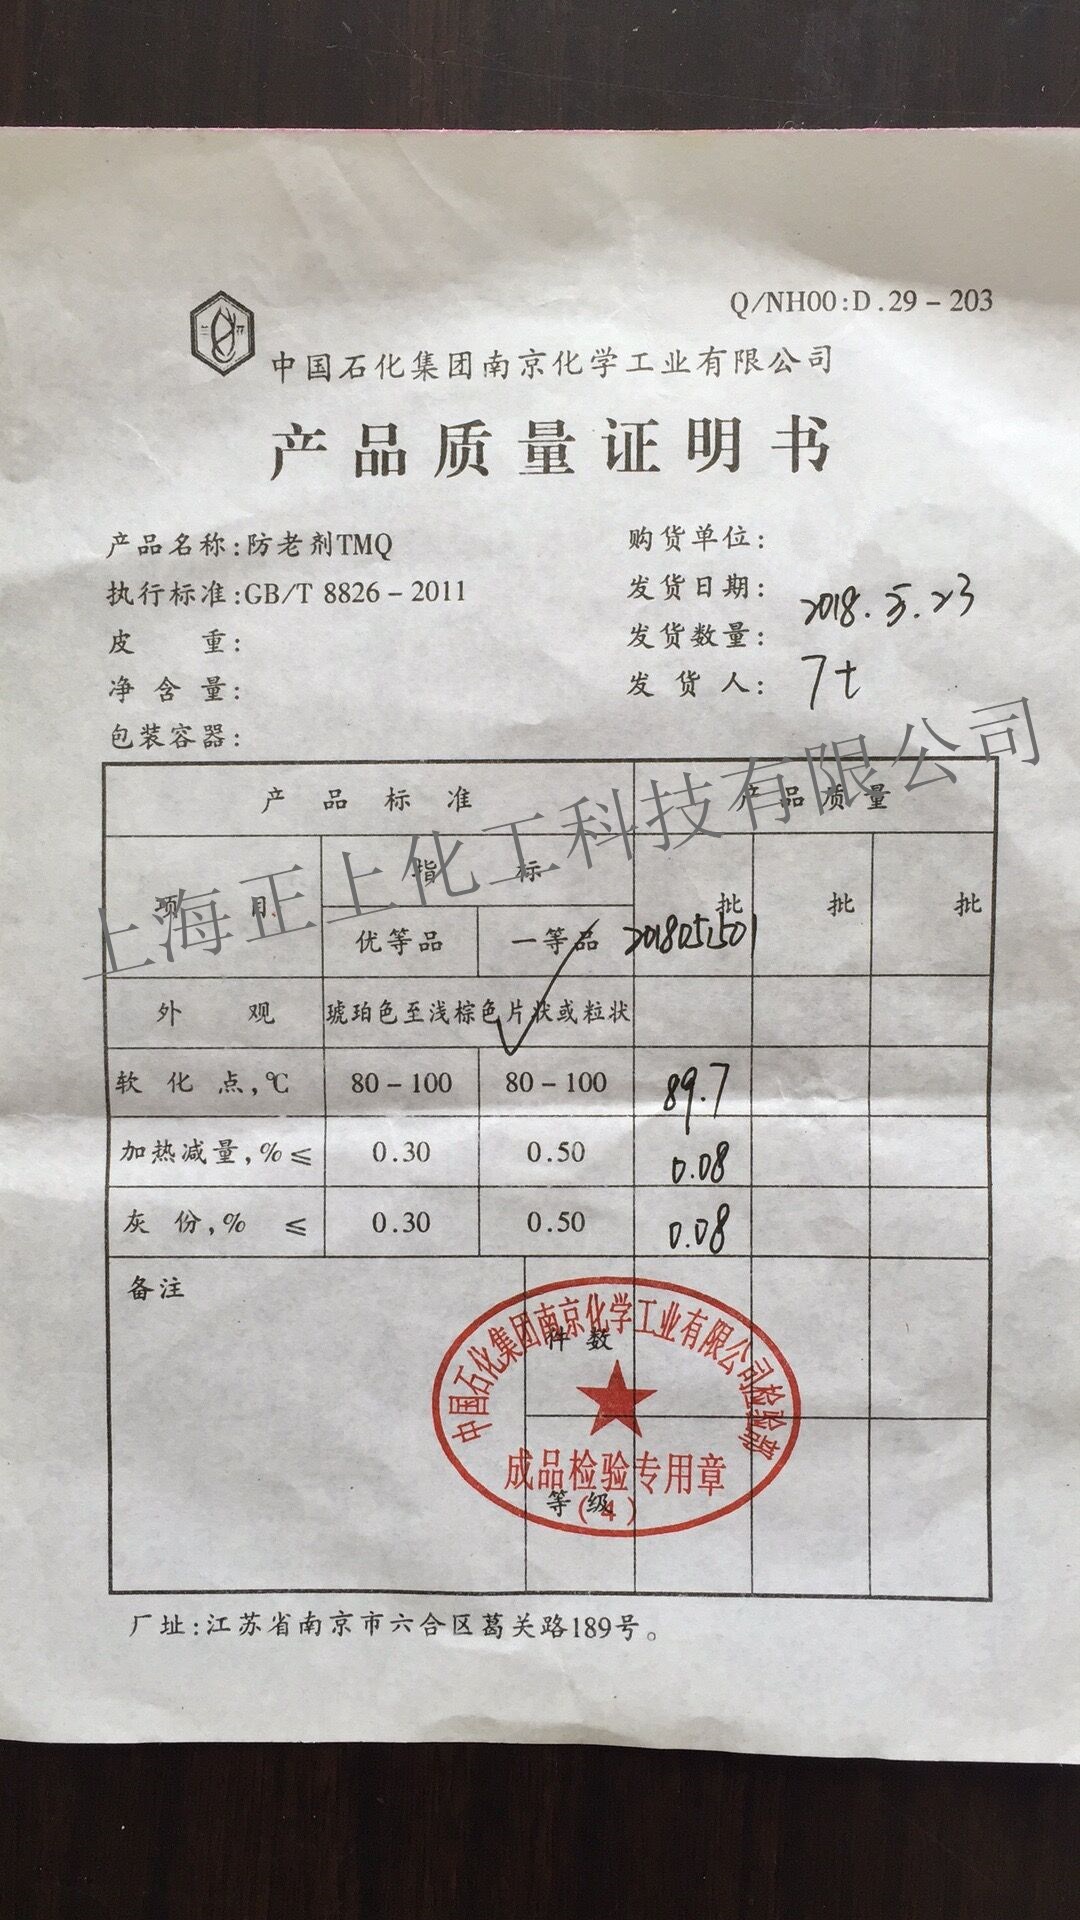 Q/NH00:D.29-203
兰 花
中国石化集团南京化学工业有限公司
产品质量证明书
产品名称:防老剂TMQ 购货单位:
执行标准:GB/T 8826-2011 发货日期: 2018.5.23
皮 重: 发货数量:
净含量: 发货人: 7t
包装容器:
上海正上化工科技有限公司
产品标准 产品质量
项目 指标 批 批 批
优等品 一等品 ✓ 2018052501
外观 琥珀色至浅棕色片状或粒状
软化点,℃ 80-100 80-100 89.7
加热减量,%≤ 0.30 0.50 0.08
灰份,% ≤ 0.30 0.50 0.08
备注 件数
等级
中国石化集团南京化学工业有限公司检验部
成品检验专用章
(4)
厂址:江苏省南京市六合区葛关路189号。